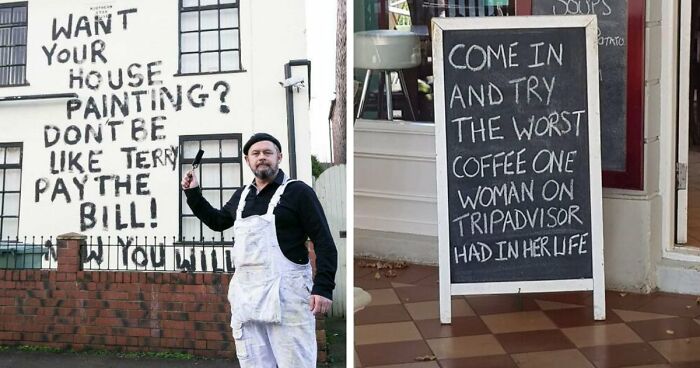 WANT
YOUR
HOUSE
PAINTING?
DON'T BE
LIKE TERRY
PAY THE
BILL!
NOW YOU WILL
COME IN
AND TRY
THE WORST
COFFEE ONE
WOMAN ON
TRIPADVISOR
HAD IN HER LIFE
SOUPS